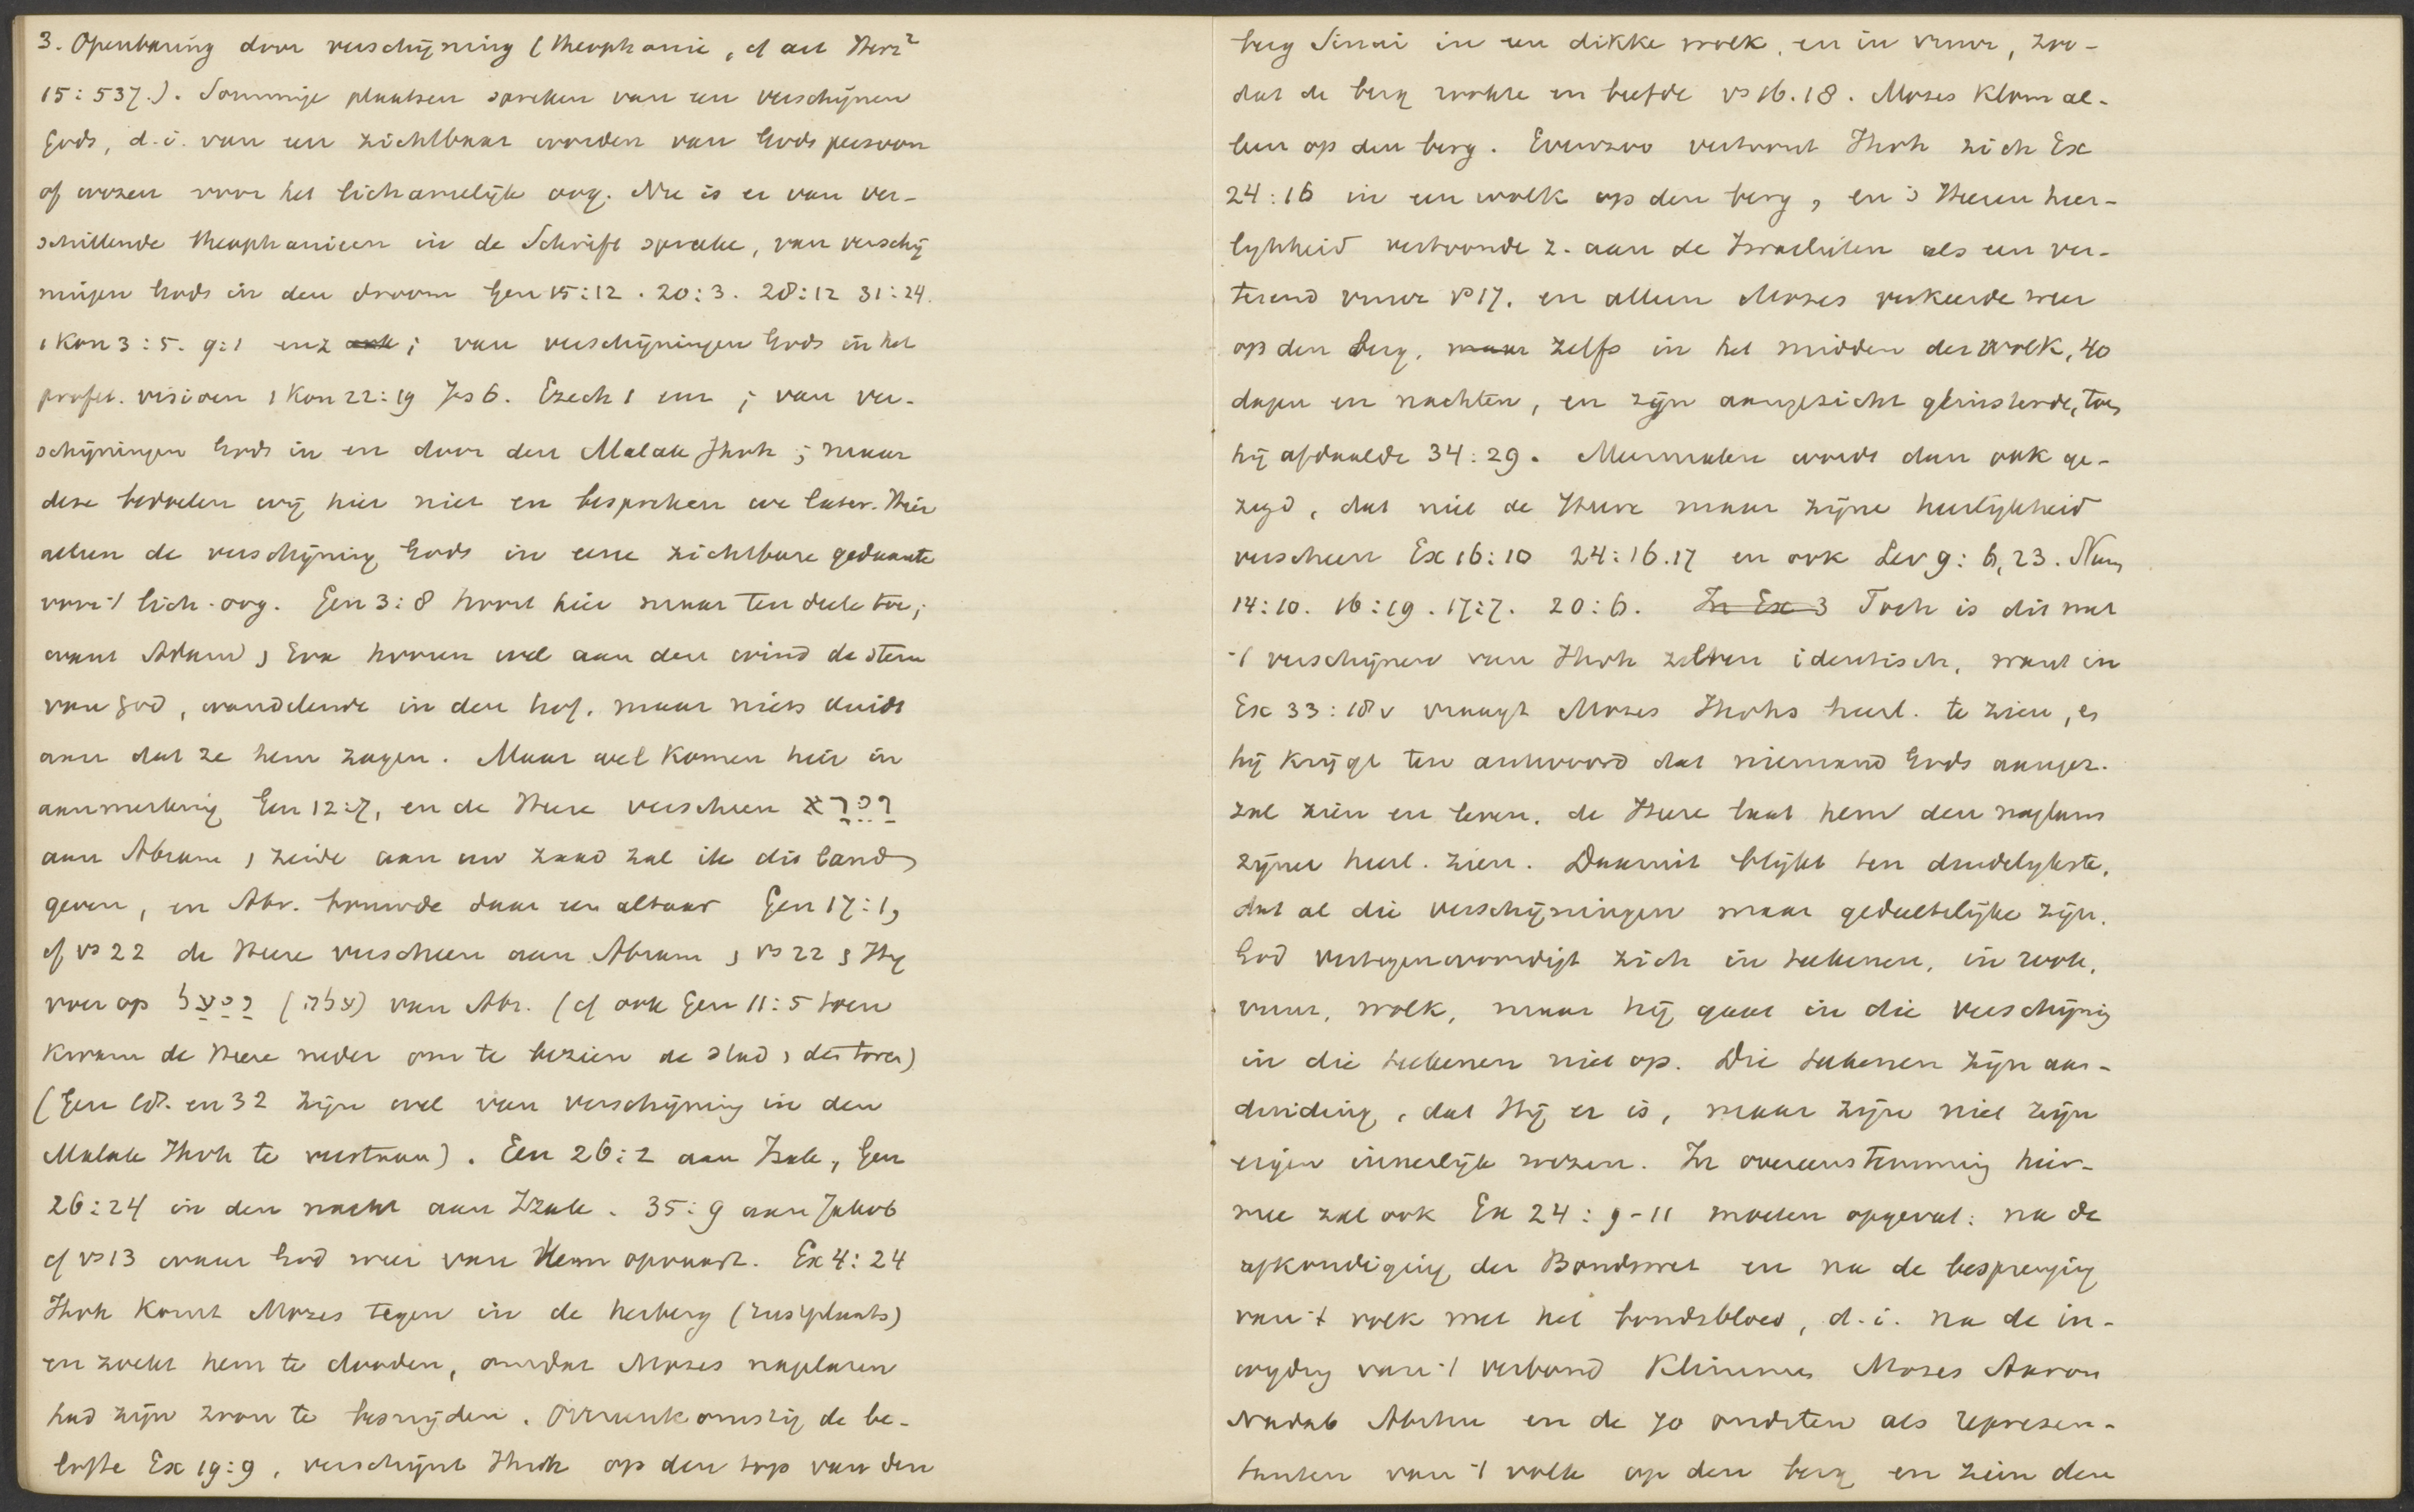 3. Openbaring door verschijning (theophanie, cf art Herz²
15:537.). Sommige plaatsen spreken van een verschijnen
Gods, d.i. van een zichtbaar worden van Gods persoon
of wezen voor het lichamelijk oog. Nu is er van ver-
schillende theophanieen in de Schrift sprake, van verschij
ningen Gods in den droom Gen 15:12. 20:3. 28:12 31:24.
1 Kon 3:5. 9:1 enz ook; van verschijningen Gods in het
profet. visioen 1 Kon 22:19 Jes 6. Ezech 1 enz; van ver-
schijningen Gods in en door den Malak Jhvh; maar
deze bedoelen wij hier niet en bespreken we later. Hier
alleen de verschijning Gods in eene zichtbare gedaante
voor 't lich. oog. Gen 3:8 hoort hier maar ten deele toe;
want Adam & Eva hooren wel aan den wind de stem
van God, wandelende in den hof. maar niets duidt
aan dat ze hem zagen. Maar wel komen hier in
aanmerking Gen 12:7, en de Heere verscheen וירא
aan Abram & zeide aan uw zaad zal ik dis land
geven, en Abr. bouwde daar een altaar Gen 17:1,
cf vs 22 de Heere verscheen aan Abram & vs 22 & Hij
voer op ויעל (עלה) van Abr. (cf ook Gen 11:5 toen
kwam de Heere neder om te bezien de stad & den toren)
(Gen 18. en 32 zijn wel van verschijning in den
Malak Jhvh te verstaan). Gen 26:2 aan Izak, Gen
26:24 in den nacht aan Izak. 35:9 aan Jakob
cf vs 13 waar God weer van Hem opvaart. Ex 4:24
Jhvh komt Mozes tegen in de herberg (rustplaats)
en zoekt hem te dooden, omdat Mozes nagelaten
had zijn zoon te besnijden. Overeenkomstig de be-
lofte Ex 19:9, verschijnt Jhvh op den top van den
berg Sinai in een dikke wolk, en in vuur, zoo-
dat de berg rookte en beefde vs 16.18. Mozes klom al-
leen op den berg. Evenzoo vertoont Jhvh zich Ex
24:16 in een wolk op den berg, en 's Heeren heer-
lijkheid vertoonde z. aan de Israelieten als een ver-
terend vuur vs 17. en alleen Mozes verkeerde weer
op den berg, maar zelfs in het midden der wolk, 40
dagen en nachten, en zijn aangezicht glinsterde, toen
hij afdaalde 34:29. Meermalen wordt dan ook ge-
zegd, dat niet de Heere maar zijne heerlijkheid
verscheen Ex 16:10 24:16.17 en ook Lev 9:6,23. Num
14:10. 16:19. 17:7. 20:6. In Ex 3 Toch is dit met
't verschijnen van Jhvh zelven identisch, want in
Ex 33:18v vraagt Mozes Jhvhs heerl. te zien, en
hij krijgt ten antwoord dat niemand Gods aangez.
zal zien en leven. de Heere laat hem den naglans
zijner heerl. zien. Daaruit blijkt ten duidelijkste,
dat al die verschijningen maar gedeeltelijke zijn.
God vertegenwoordigt zich in teekenen, in rook,
vuur, wolk, maar hij gaat in die verschijning
in die teekenen niet op. Die teekenen zijn aan-
duiding, dat Hij er is, maar zijn niet zijn
eigen innerlijk wezen. In overeenstemming hier-
mee zal ook Ex 24:9-11 moeten opgevat: na de
afkondiging der Bondswet en na de besprenging
van 't volk met het bondsbloed, d.i. na de in-
wijding van 't verbond klimmen Mozes Aaron
Nadab Abihu en de 70 oudsten als represen-
tanten van 't volk op den berg en zien den